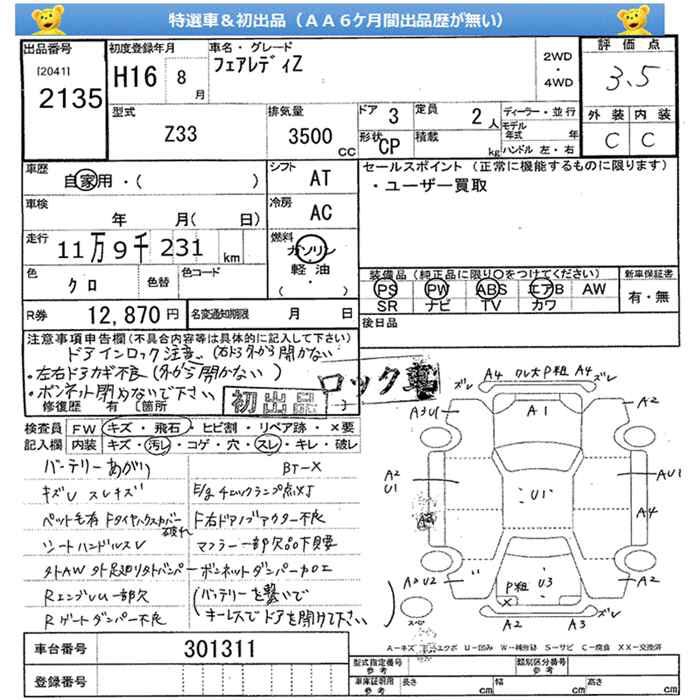 特選車&初出品(AA6ケ月間出品歴が無い)
出品番号
[2041]
2135
初度登録年月
H16 8
月
車名・グレード
フェアレディZ
2WD
・
4WD
評価点
3.5
外装 内装
C C
型式
Z33
排気量
3500
CC
ドア 3
定員 2 人
形状 CP
積載 kg
ディーラー・並行
モデル年式 年
ハンドル 左・右
車歴
自家用・( )
シフト
AT
セールスポイント(正常に機能するものに限ります)
・ユーザー買取
車検
年 月( 日)
冷房
AC
走行
11万9千231 km
燃料
ガソリン
軽・油
・
( )
色
クロ
色替
色コード
装備品(純正品に限り○をつけてください)
PS PW ABS エアB AW
SR ナビ TV カワ
新車保証書
有・無
R券
12,870円
名変通知期限 月 日
後日品
注意事項申告欄(不具合内容等は具体的に記入して下さい)
ドアインロック注意、(右ドア外から開かない
・左右ドアカギ不良(外から開かない)
・ボンネット閉めないで下さい
修復歴 有 [箇所
初出品
ロック車
検査員
記入欄
FW キズ・飛石・ヒビ割・リペア跡・×要
内装 キズ・汚レ・コゲ・穴・スレ・キレ・破レ
バーテリーあがり BT-X
キズU スレキズ
E/gチェックランプ点灯
ペット毛有 FタイヤハウスカバーS破れ
F右ドアノブアウター不良
シートハンドルスレ
マフラー一部欠品下見要
外AW 外足廻り外バンパー
ボンネットダンパーカロエ
RエンブレU一部欠
Rゲートダンパー不良
(バッテリーを繋いで
キーレスでドアを開けて下さい)
ズレ A4 クレ大P粗 A4 ズレ
A3U1
A1
A2
A2
U1
U1
AU1
A3
A4
A3U2
P粗
X
U3
A2
スペア
A2
A3
ズレ
A-キズ E-エクボ U-凹み W-補修跡 S-サビ C-腐食 XX-交換済
車台番号
301311
登録番号
型式指定番号
参考
類別区分番号
参考
車庫証明用
参考
長さ cm
幅 cm
高さ cm